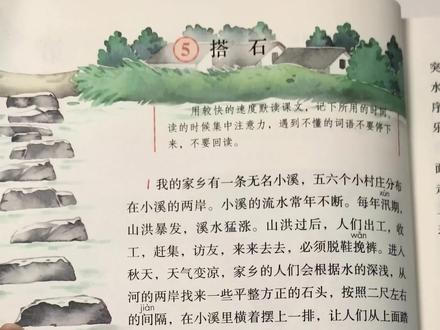 5 搭石
用较快的速度默读课文，记下所用的时间。
读的时候集中注意力，遇到不懂的词语不要停下
来，不要回读。
1 我的家乡有一条无名小溪，五六个小村庄分布
xùn
在小溪的两岸。小溪的流水常年不断。每年汛期，
山洪暴发，溪水猛涨。山洪过后，人们出工、收
wǎn
工、赶集、访友，来来去去，必须脱鞋挽裤。进入
秋天，天气变凉，家乡的人们会根据水的深浅，从
河的两岸找来一些平整方正的石头，按照二尺左右
jiàn
的间隔，在小溪里横着摆上一排，让人们从上面踏
突
水
序